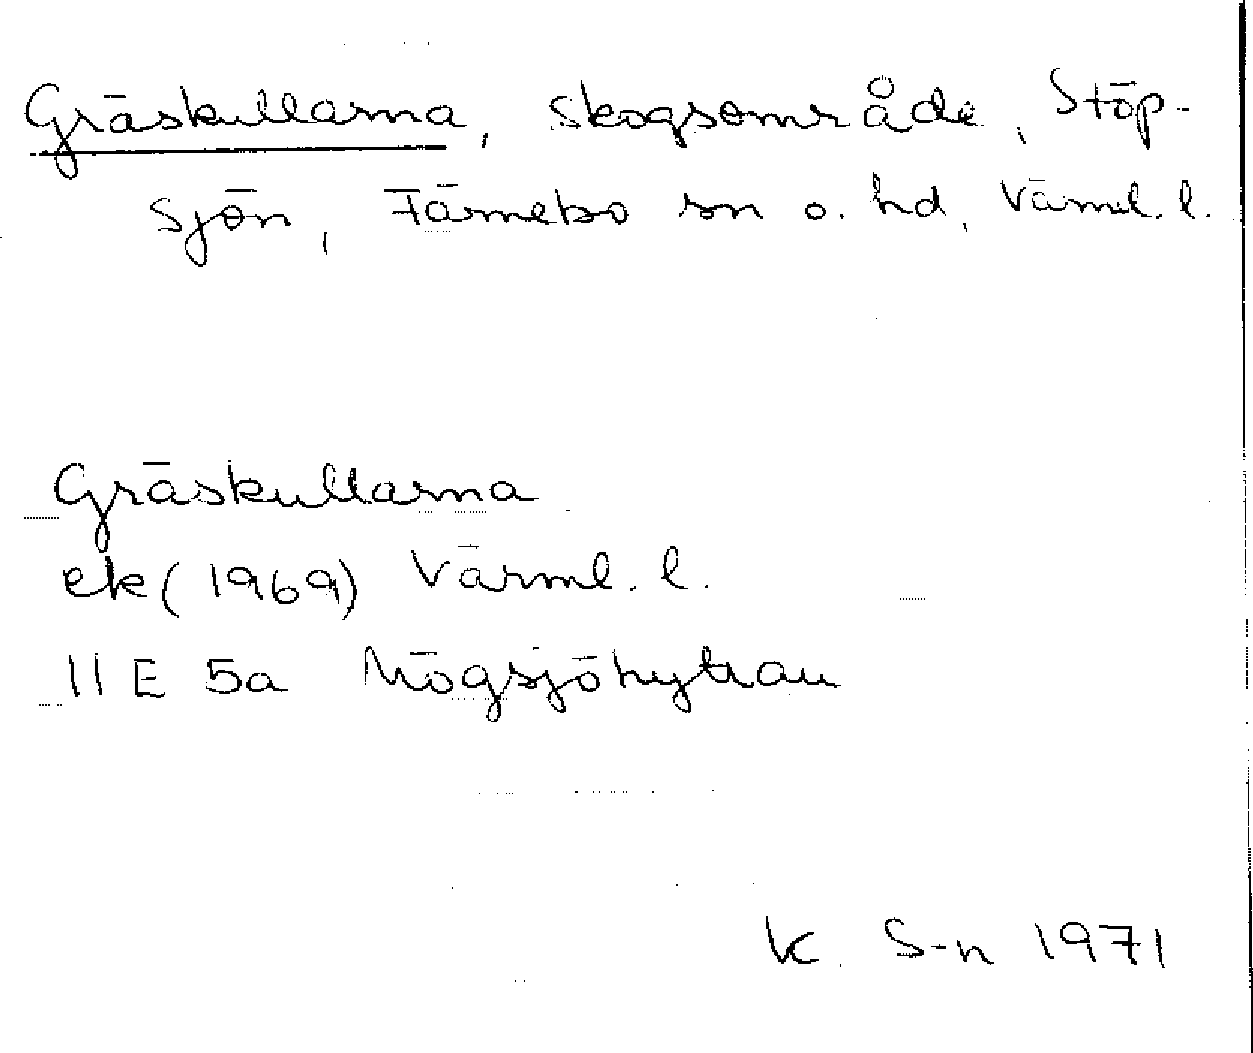 Gräskullarna, skogsområde, Stöp-
sjön, Färnebo sn o. hd, Värml. l.
Gräskullarna
ek (1969) Värml. l.
11 E 5a Mögsjöhyttan
K. S-n 1971